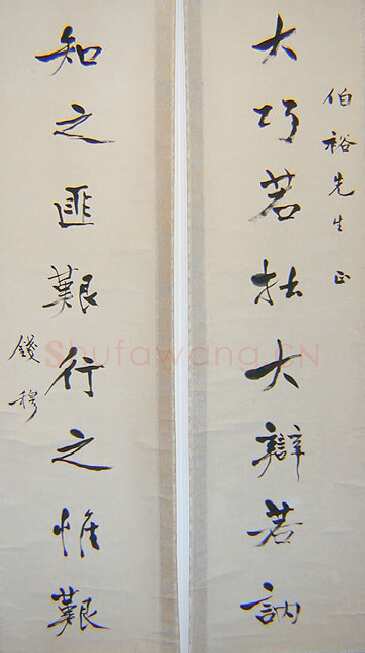 伯裕先生正
大巧若拙大辯若訥
知之匪艱行之惟艱
錢穆
Shufawang.CN